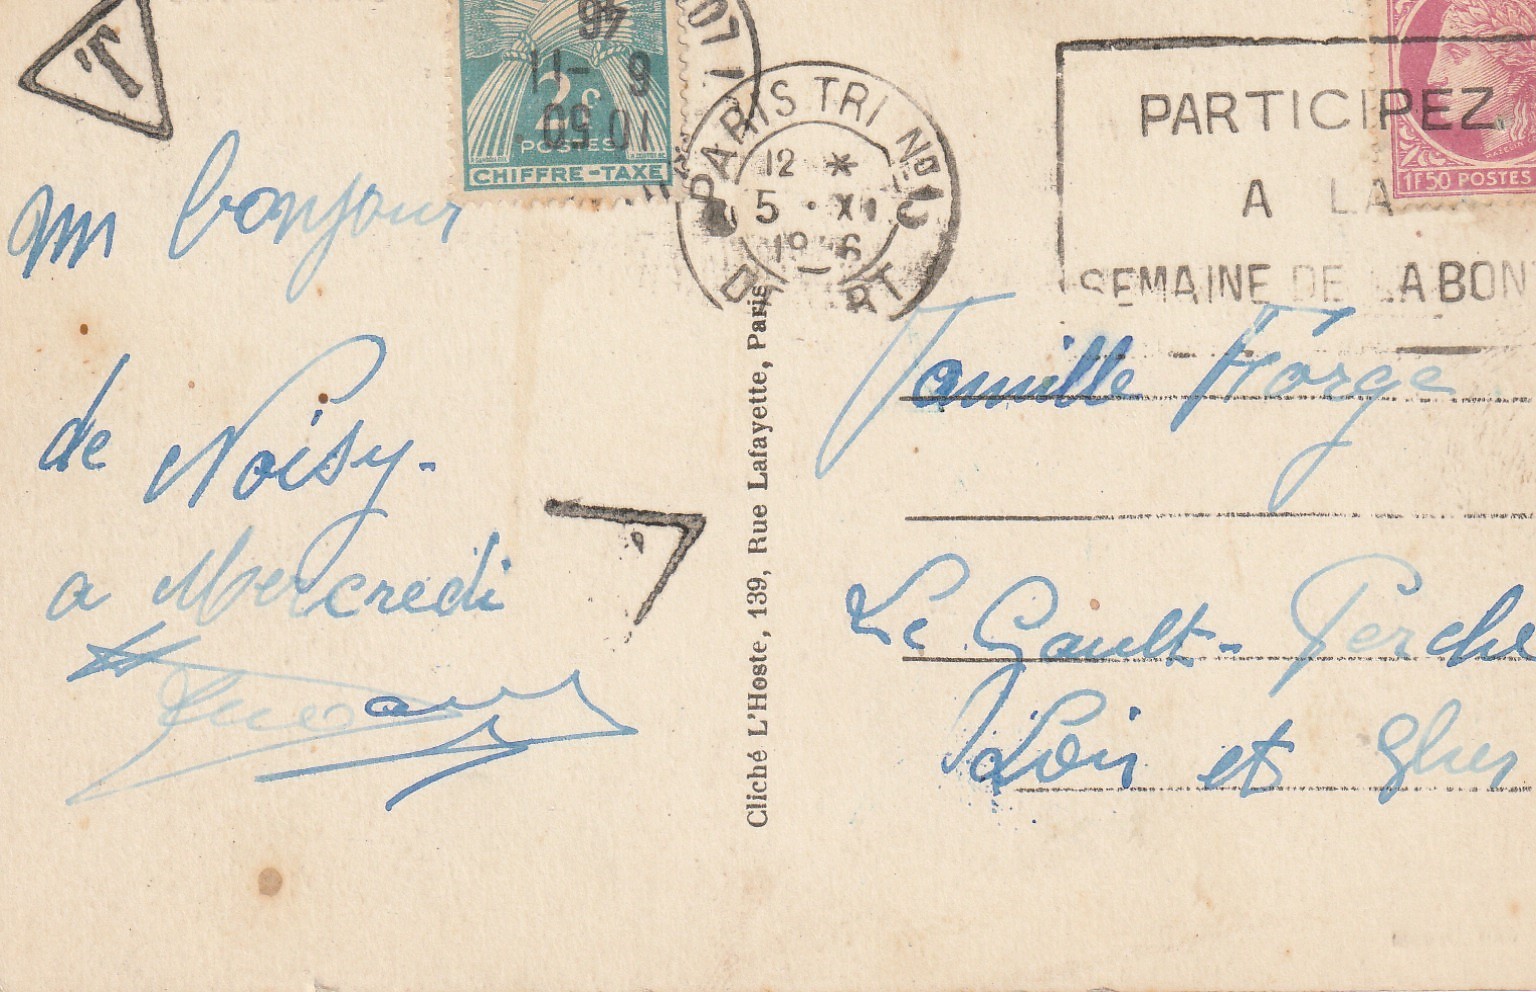 T
46
9 -11
10 50
2F
POSTES
CHIFFRE-TAXE
PARIS TRI Nº
DÉPART
12 *
5 · XI
19 6
PARTICIPEZ
A LA
SEMAINE DE LA BON
1F50 POSTES
un bonjour
de Noisy-
a Mercredi
Cliché L'Hoste, 139, Rue Lafayette, Paris
Famille Forge
Le Gault-Perche
Loir et Cher